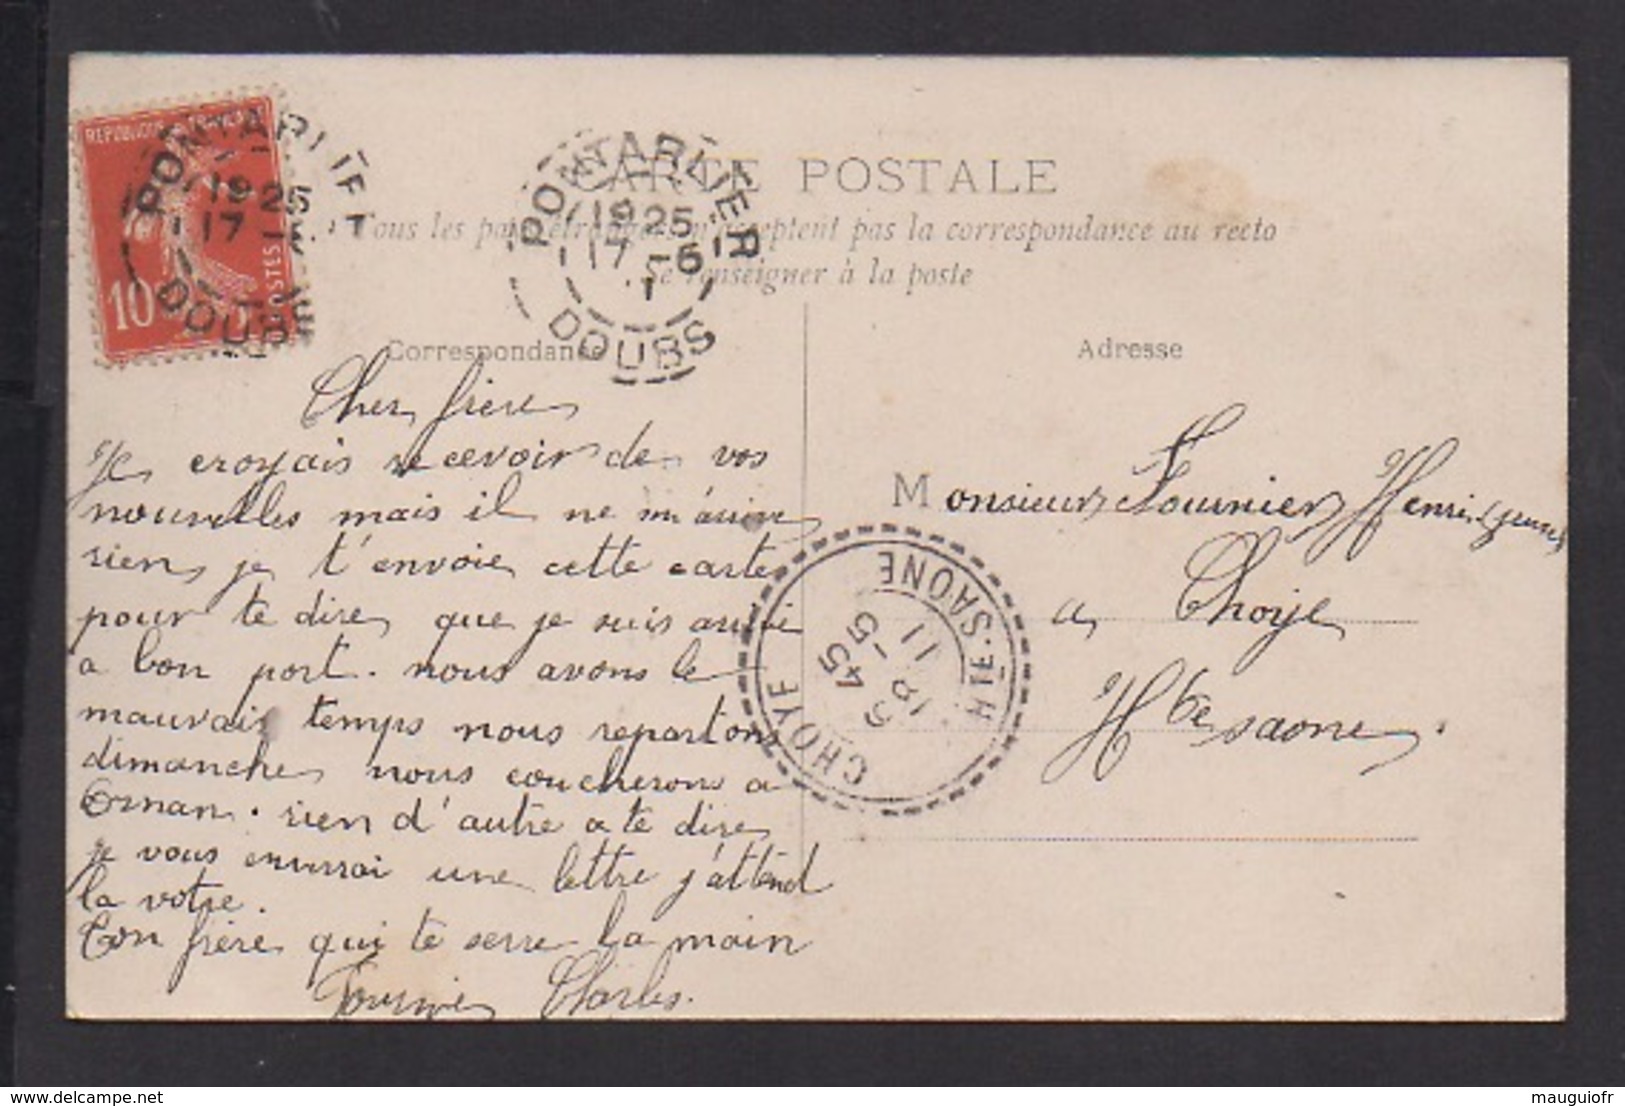 REPUBLIQUE FRANCAISE
10
POSTES
PONTARLIER
19 25
17
DOUBS
PONTARLIER
19 25
17 -5
DOUBS
CARTE POSTALE
Tous les pays étrangers n'acceptent pas la correspondance au recto
Se renseigner à la poste
Correspondance
Cher frère
Je croyais recevoir de vos
nouvelles mais il ne m'arrive
rien je t'envoie cette carte
pour te dire que je suis arrivé
a bon port. nous avons le
mauvais temps nous repartons
dimanche nous coucherons a
Ornan. rien d'autre a te dire
je vous envirrai une lettre j'attend
la votre.
Ton frère qui te serre la main
Fournier Charles.
Adresse
Monsieur Fournier Henri (jeune)
a Choye
Hte saone.
CHOYE
HTE-SAONE
45
18 -5
11
mauguiofr